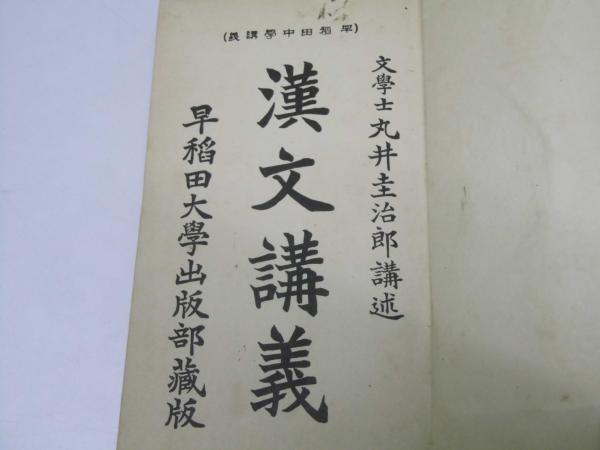 (早稻田中學講義)
文學士丸井圭治郎講述
漢文講義
早稻田大學出版部藏版